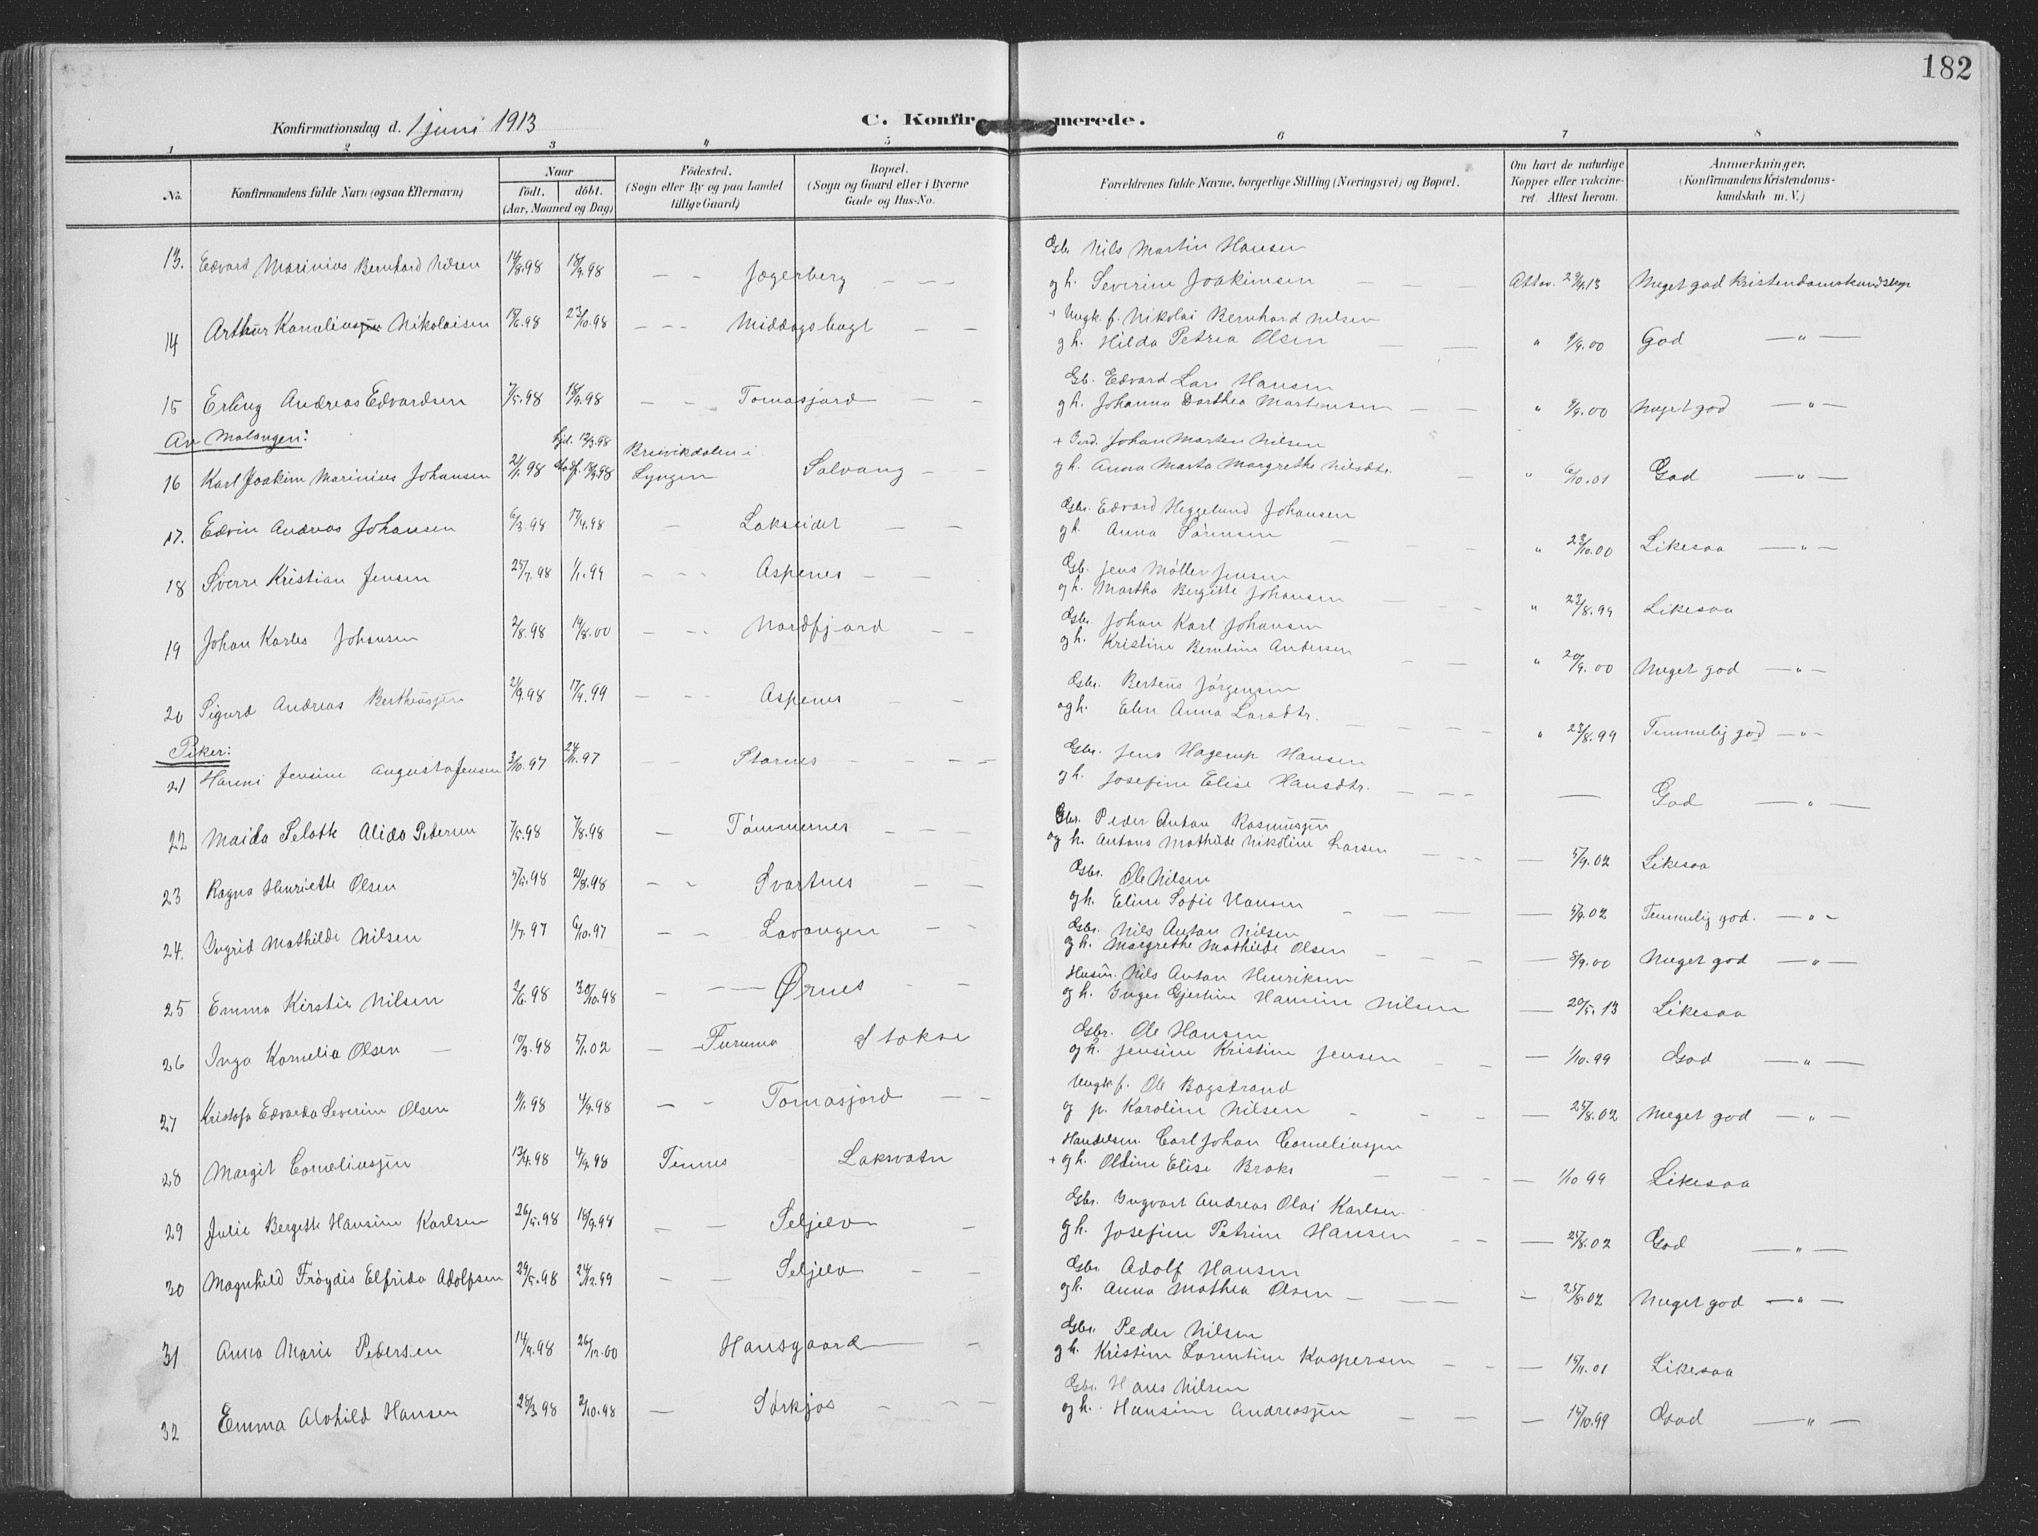 182
Konfirmationsdag d. 1 juni 1913
C. Konfirmerede.
1 2 3 4 5 6 7 8
No. Konfirmandens fulde Navn (ogsaa Efternavn) Naar født. døbt. (Aar, Maaned og Dag) Fødested. (Sogn eller By og paa Landet tillige Gaard) Bopæl. (Sogn og Gaard eller i Byerne Gade og Hus-No. Forældrenes fulde Navne, borgerlige Stilling (Næringsvei) og Bopæl. Om havt de naturlige Kopper eller vakcineret. Attest herom. Anmærkninger. (Konfirmandens Kristendomskundskab m. V.)
Gbr. Nils Martin Hansen
13. Edvard Marinius Bernhard Nilsen 14/8.98 18/9.98 — - Jægerberg - — —
og h. Severine Joakimsen — — — 29/4.13 Meget god Kristendomskundskap
+ Ungk. f. Nikolai Bernhard Nilsen
14 Arthur Kornelius Nikolaisen 23/10.98 — - — Middagsbugt — —
og h. Hilda Petrea Olsen — — " 9/9.00 God — " —
Gb. Edvard Lars Hansen
15 Erling Andreas Edvardsen 7/5.98 18/9.98 — - Tomasjord — —
og h. Johanna Dorthea Martensen — — " 9/9.00 Meget god — " —
Av Malangen:
hjd. 12/3.98 Breivikdalen i
+ Johan Marten Nilsen
16 Karl Joakim Marinius Johansen 2/1.98 Lyngen Salvang — —
og h. Anna Marta Margrethe Nilsdtr. — " 6/10.01 God — " —
Gbr. Edvard Heggelund Johansen
17. Edvin Andreas Johansen 6/3.98 17/4.98 — Lakseidet — —
og h. Anna Sørensen — — " 23/10.00 Likesaa — " —
Gb. Jens Møller Jensen
18 Sverre Kristian Jensen 25/7.98 1/1.99 — - Aspenes — —
og h. Martha Bergitte Johansen — — " 23/8.99 Likesaa
Gbr. Johan Karl Johansen
19 Johan Karles Johansen 2/8.98 19/8.00 — - Nordfjord — —
og h. Kristine Berntine Andersen — — " 20/9.00 Meget god — " —
Gbr. Berteus Jørgensen
20 Sigurd Andreas Bertheussen 21/9.98 17/9.99 — - Aspenes — —
og h. Elen Anna Larsdtr. — — " 23/8.99 Temmelig god — " —
Piker:
Gbr. Jens Hagerup Hansen
21 Hanni Jensine Augusta Jensen 3/10.97 24/11.97 — - Stornes — - —
og h. Josefine Elise Hansdtr. — — — God — " —
Gbr. Peder Antan Rasmussen
22 Maida Selotte Alida Petersen 7/5.98 7/8.98 — Tømmernes — —
og h. Antona Mathilde Nikoline Larsen — — — 5/9.02 Likesaa
Gbr. Ole Nilsen
23 Ragna Henriette Olsen 5/5.98 21/8.98 — - Svartnes — —
og h. Eline Sofie Hansen — — — 5/9.02 Temmelig god. — " -
Gbr. Nils Antan Nilsen
24. Ingrid Mathilde Nilsen 1/7.97 6/10.97 — - Lavangen — —
og h. Margrethe Mathilde Olsen — — — 8/9.00 Meget god — " —
Husm. Nils Antan Henriksen
25 Emma Kirstin Nilsen 2/6.98 30/10.98 — — Ørnes - -
og h. Inger Gjertine Hansine Nilsen — 20/5.13 Likesaa
Gbr. Ole Hansen
26 Inga Kornelia Olsen — 10/3.98 5/1.02 — Furumo Stokse
og h. Jensine Kristine Jensen — — — 1/10.99 God — " —
Ungk. f. Ole Bagstrand
27 Kristofa Edvarda Severine Olsen 4/9.98 — - Tomasjord — —
og p. Karoline Nilsen - - — 25/8.02 Meget god — " —
Handelsm. Carl Johan Corneliussen
28 Margit Corneliussen 13/4.98 4/9.98 Tennes — Laksvatn —
+ og h. Oldine Elise Broks — — — 1/10 99 Likesaa
Gbr. Ingvart Andreas Olai Karlsen
29 Julie Bergette Hansine Karlsen 26/5.98 18/9.98 — — Seljelv —
og h. Josefine Petrine Hansen — — — 25/8.02 God — " —
Gbr. Adolf Hansen
30 Magnhild Frøydis Elfrida Adolfsen 29/5.98 24/12.99 - — Seljelv —
og h. Anna Mathea Olsen — — — 25/8.02 Meget god — " —
Gbr. Peder Nilsen
31 Anna Marie Pedersen 14/9.98 26/12.00 Hansgaard — -
og h. Kristine Lorentine Kaspersen — - — 15/11.01 Likesaa
Gbr. Hans Nilsen
32 Emma Alvhild Hansen 25/3.98 2/10.98 — Sørkjos - — —
og h. Hansine Andreassen — — — 15/10.99 God — " —